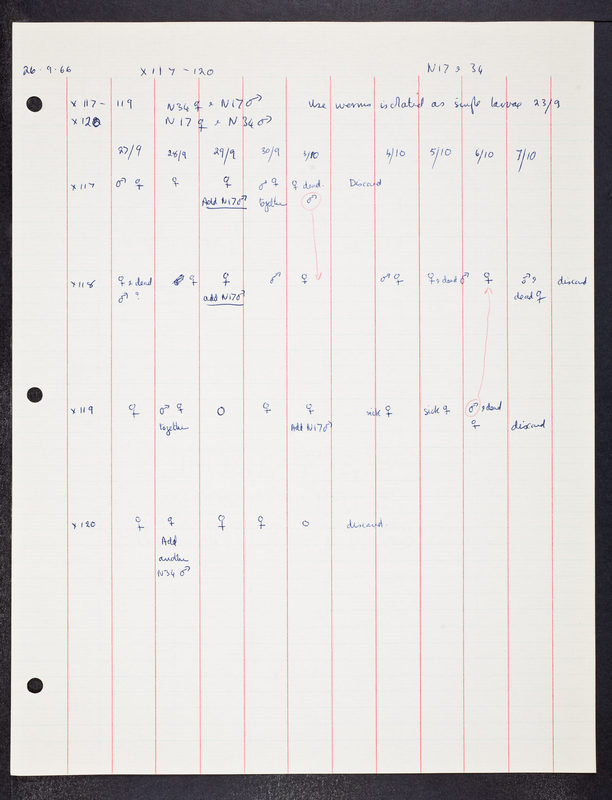 26.9.66 X117-120 N17 × 34
X117-119 N34♀ × N17♂ Use worms isolated as single larvae 23/9
X120 N17♀ × N34♂
27/9 28/9 29/9 30/9 3/10 4/10 5/10 6/10 7/10
X117 ♂ ♀ ♀ ♀ ♂ ♀ ♀ dead. Discard
Add N17♂ together ♂
X118 ♀ & dead ♀ ♀ ♂ ♀ ♂ ♀ ♀ & dead ♂ ♀ ♂ & discard
♂ ? add N17♂ dead ♀
X119 ♀ ♂ ♀ O ♀ ♀ sick ♀ sick ♀ ♂ & dead
together Add N17♂ ♀ discard
X120 ♀ ♀ ♀ ♀ O discard.
Add
another
N34 ♂